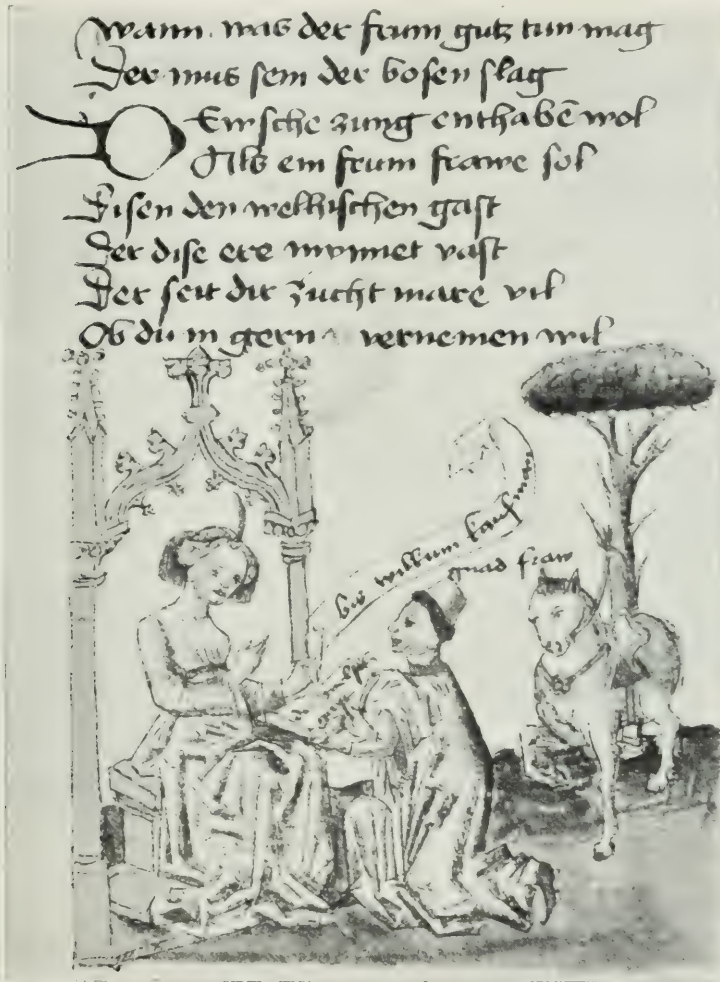 Wann was der frum gutz tun mag
Der mus sein der bosen slag
Tewsche zung enthabē wol
Als ein frum frawe sol
Disen den welhischen gast
Der dise ere mynnet vast
Der seit dir zucht mare vil
Ob du in gern vernemen wil
bis wilkum kaufman
gnad fraw